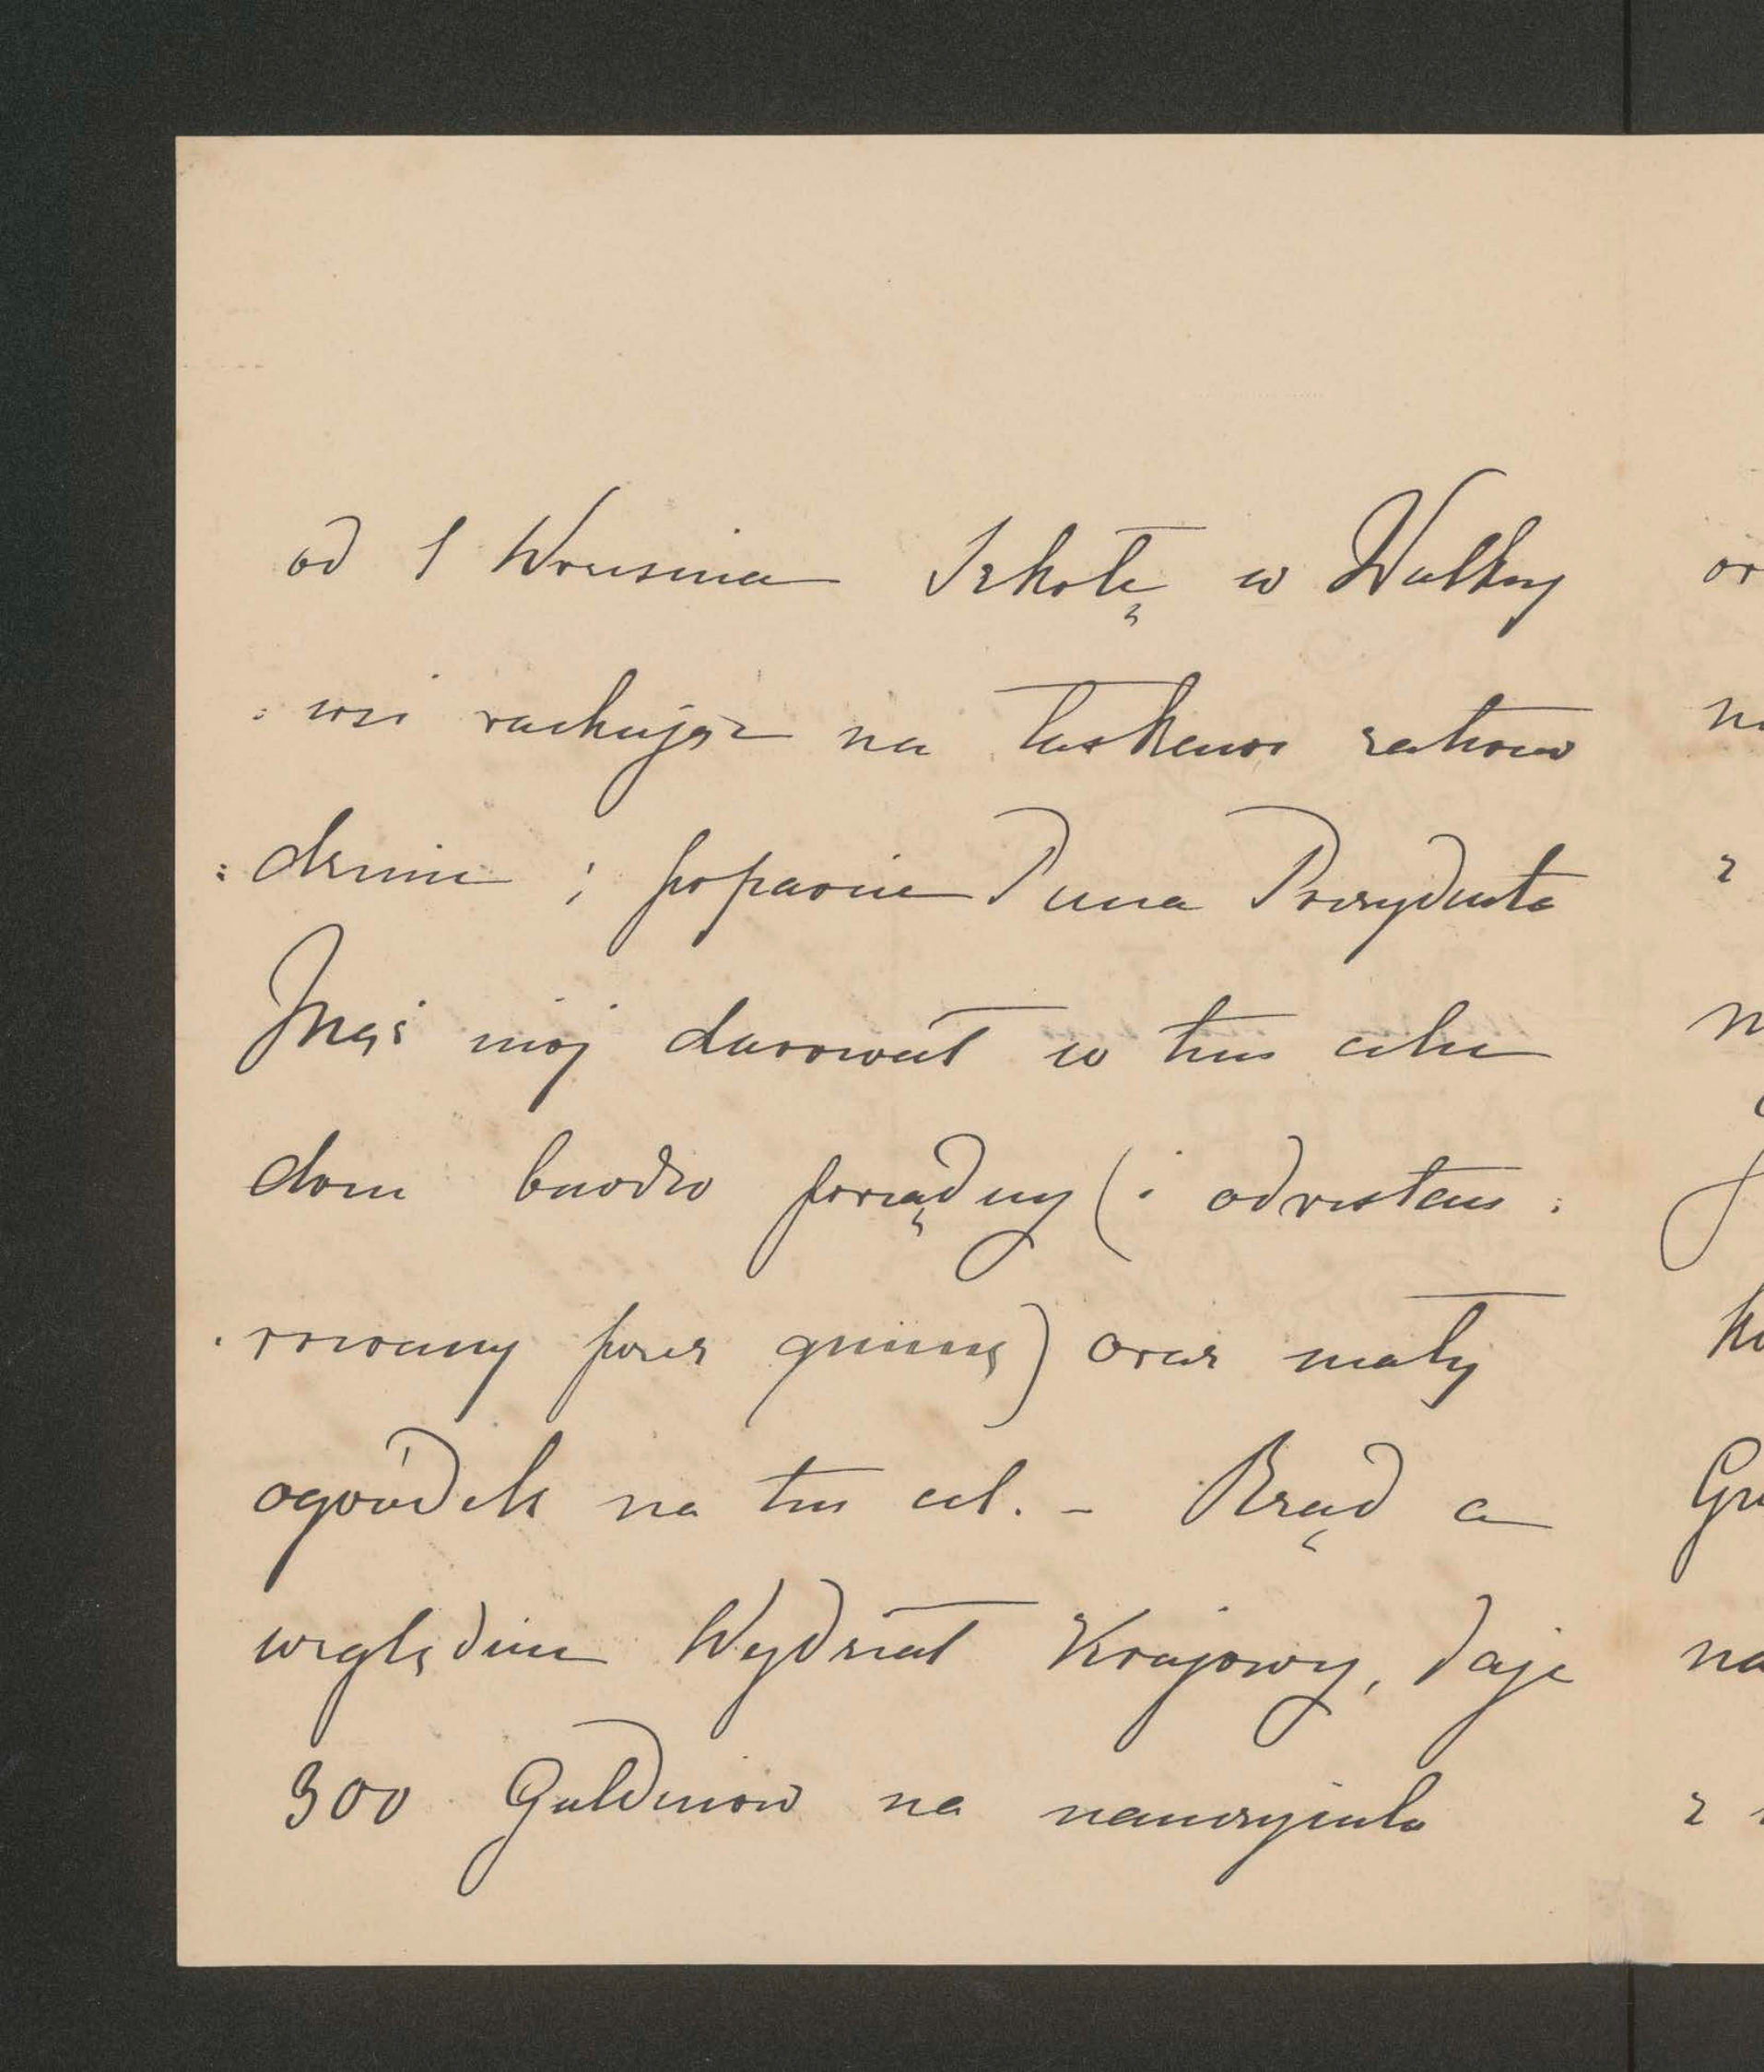 od 1 Września Szkołę w Wulky
: wsi rachując na łaskawe zatwier
: dzenie i poparcie Pana Prezydenta
Mąż mój darował w tem celu
dom bardzo porządny (i odrestau :
: rowany przez gminę) oraz mały
ogródek na ten cel. – Rząd a
względnie Wydział Krajowy, daje
300 Guldenów na nauczyciela
or
z
Gr
na
z